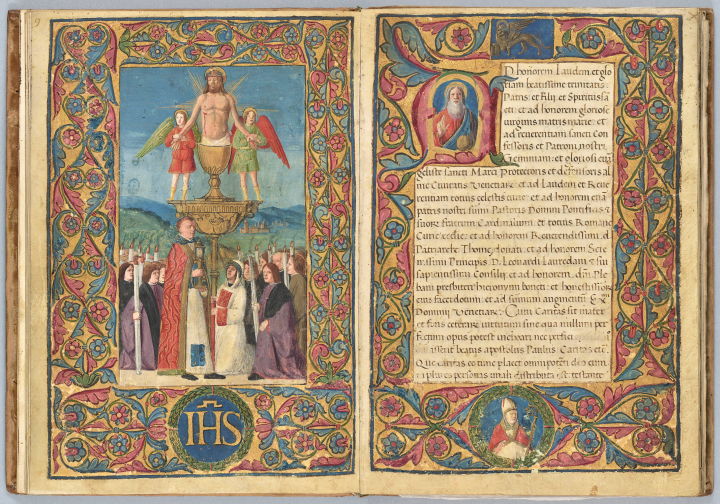 IHS
D honorem Laudem et glo
riam beatissime trinitatis
Patris et Filij et Spiritus sa
cti et ad honorem gloriose
virginis matris marie et
ad reverentiam sancti Con
fessoris et Patroni nostri
Gemmiani et gloriosi evã
geliste sancti Marci Protectoris et defensoris al
me Civitatis Venetiar et ad Laudem et Reve
rentiam totius celestis curie et ad honorem
patris nostri sumi Pastoris Domini Pontificis
suorq fratrum Cardinalium et totius Romane
Curie et ad honorem Reverendissimi d
Patriarche Thome donati et ad honorem Sere
nissimi Principis D Leonardi Lauredani et sui
sapientissimi Consilij et ad honorem dni Ple
bani presbiteri hieronymi boneti et honestissimor
eius sacerdotum et ad summum augmentum
Dominij Venetiar Cum Caritas sit mater
et fons ceterar virtutum sine qua nullum per
fectum opus potest inchoari nec perfici
asserit beatus apostolus Paulus Caritas
Que Caritas
personas distribuit